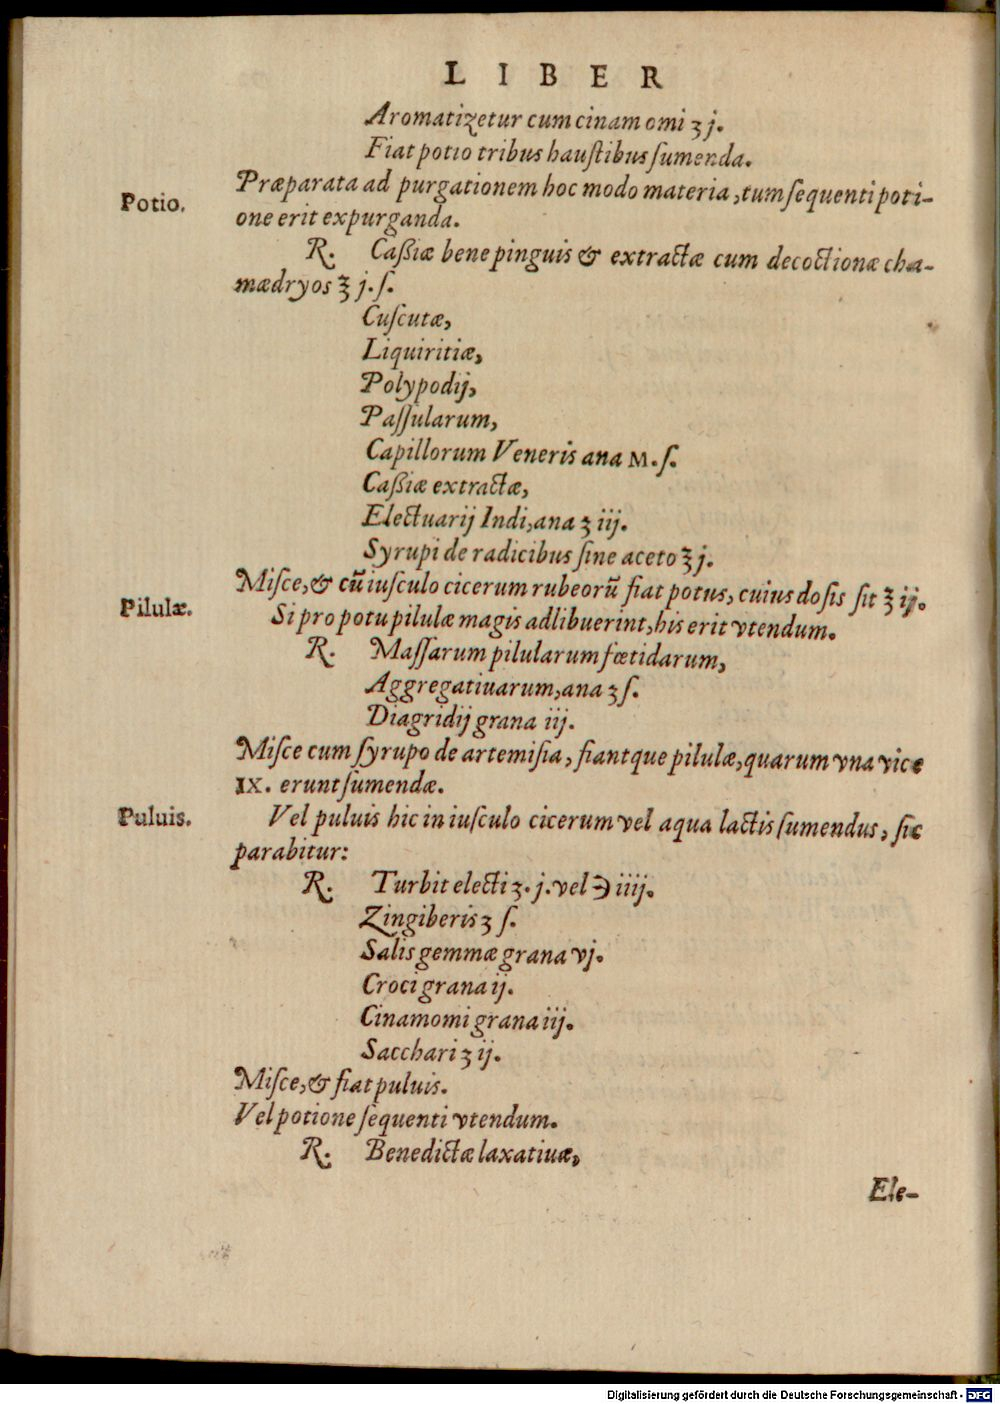 LIBER
Aromatizetur cum cinamomi ʒ j.
Fiat potio tribus hauſtibus ſumenda.
Potio.
Præparata ad purgationem hoc modo materia, tum ſequenti poti-
one erit expurganda.
R. Caßiæ bene pinguis & extractæ cum decoctionæ cha-
mædryos ℥ j. ſ.
Cuſcutæ,
Liquiritiæ,
Polypodij,
Paſſularum,
Capillorum Veneris ana M. ſ.
Caßiæ extractæ,
Electuarij Indi, ana ʒ iij.
Syrupi de radicibus ſine aceto ℥ j.
Miſce, & cũ iuſculo cicerum rubeorũ fiat potus, cuius doſis ſit ℥ ij.
Pilulæ.
Si pro potu pilulæ magis adlibuerint, his erit vtendum.
R. Maſſarum pilularum fœtidarum,
Aggregatiuarum, ana ʒ ſ.
Diagridij grana iij.
Miſce cum ſyrupo de artemiſia, fiantque pilulæ, quarum vna vice
IX. erunt ſumendæ.
Puluis.
Vel puluis hic in iuſculo cicerum vel aqua lactis ſumendus, ſic
parabitur:
R. Turbit electi ʒ. j. vel ℈ iiij.
Zingiberis ʒ ſ.
Salis gemmæ grana vj.
Croci grana ij.
Cinamomi grana iij.
Sacchari ʒ ij.
Miſce, & fiat puluis.
Vel potione ſequenti vtendum.
R. Benedictæ laxatiuæ,
Ele-
Digitalisierung gefördert durch die Deutsche Forschungsgemeinschaft - DFG